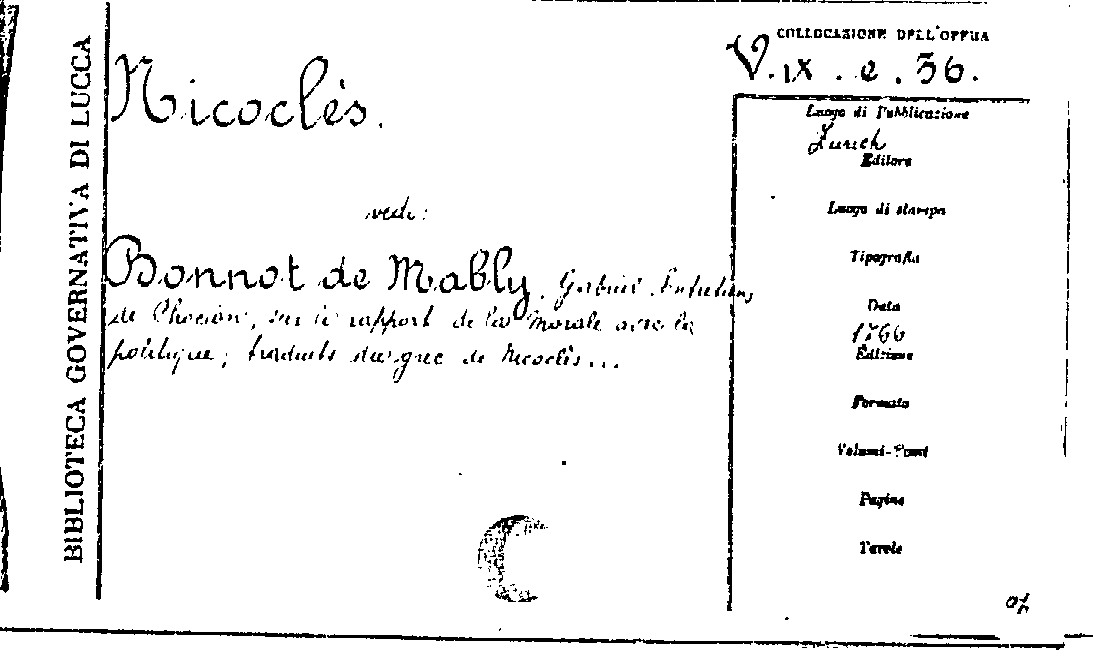 BIBLIOTECA GOVERNATIVA DI LUCCA
Nicoclès.
vedi:
Bonnot de Mably, Gabriel. Entretiens
de Phocion, sur le rapport de la Morale avec la
politique; traduits du grec de Nicoclès...
COLLOCAZIONE DELL'OPERA
V. IX. e. 36.
Luogo di Pubblicazione
Zurich
Editore
Luogo di stampa
Tipografia
Data
1766
Edizione
Formato
Volumi-Tomi
Pagine
Tavole